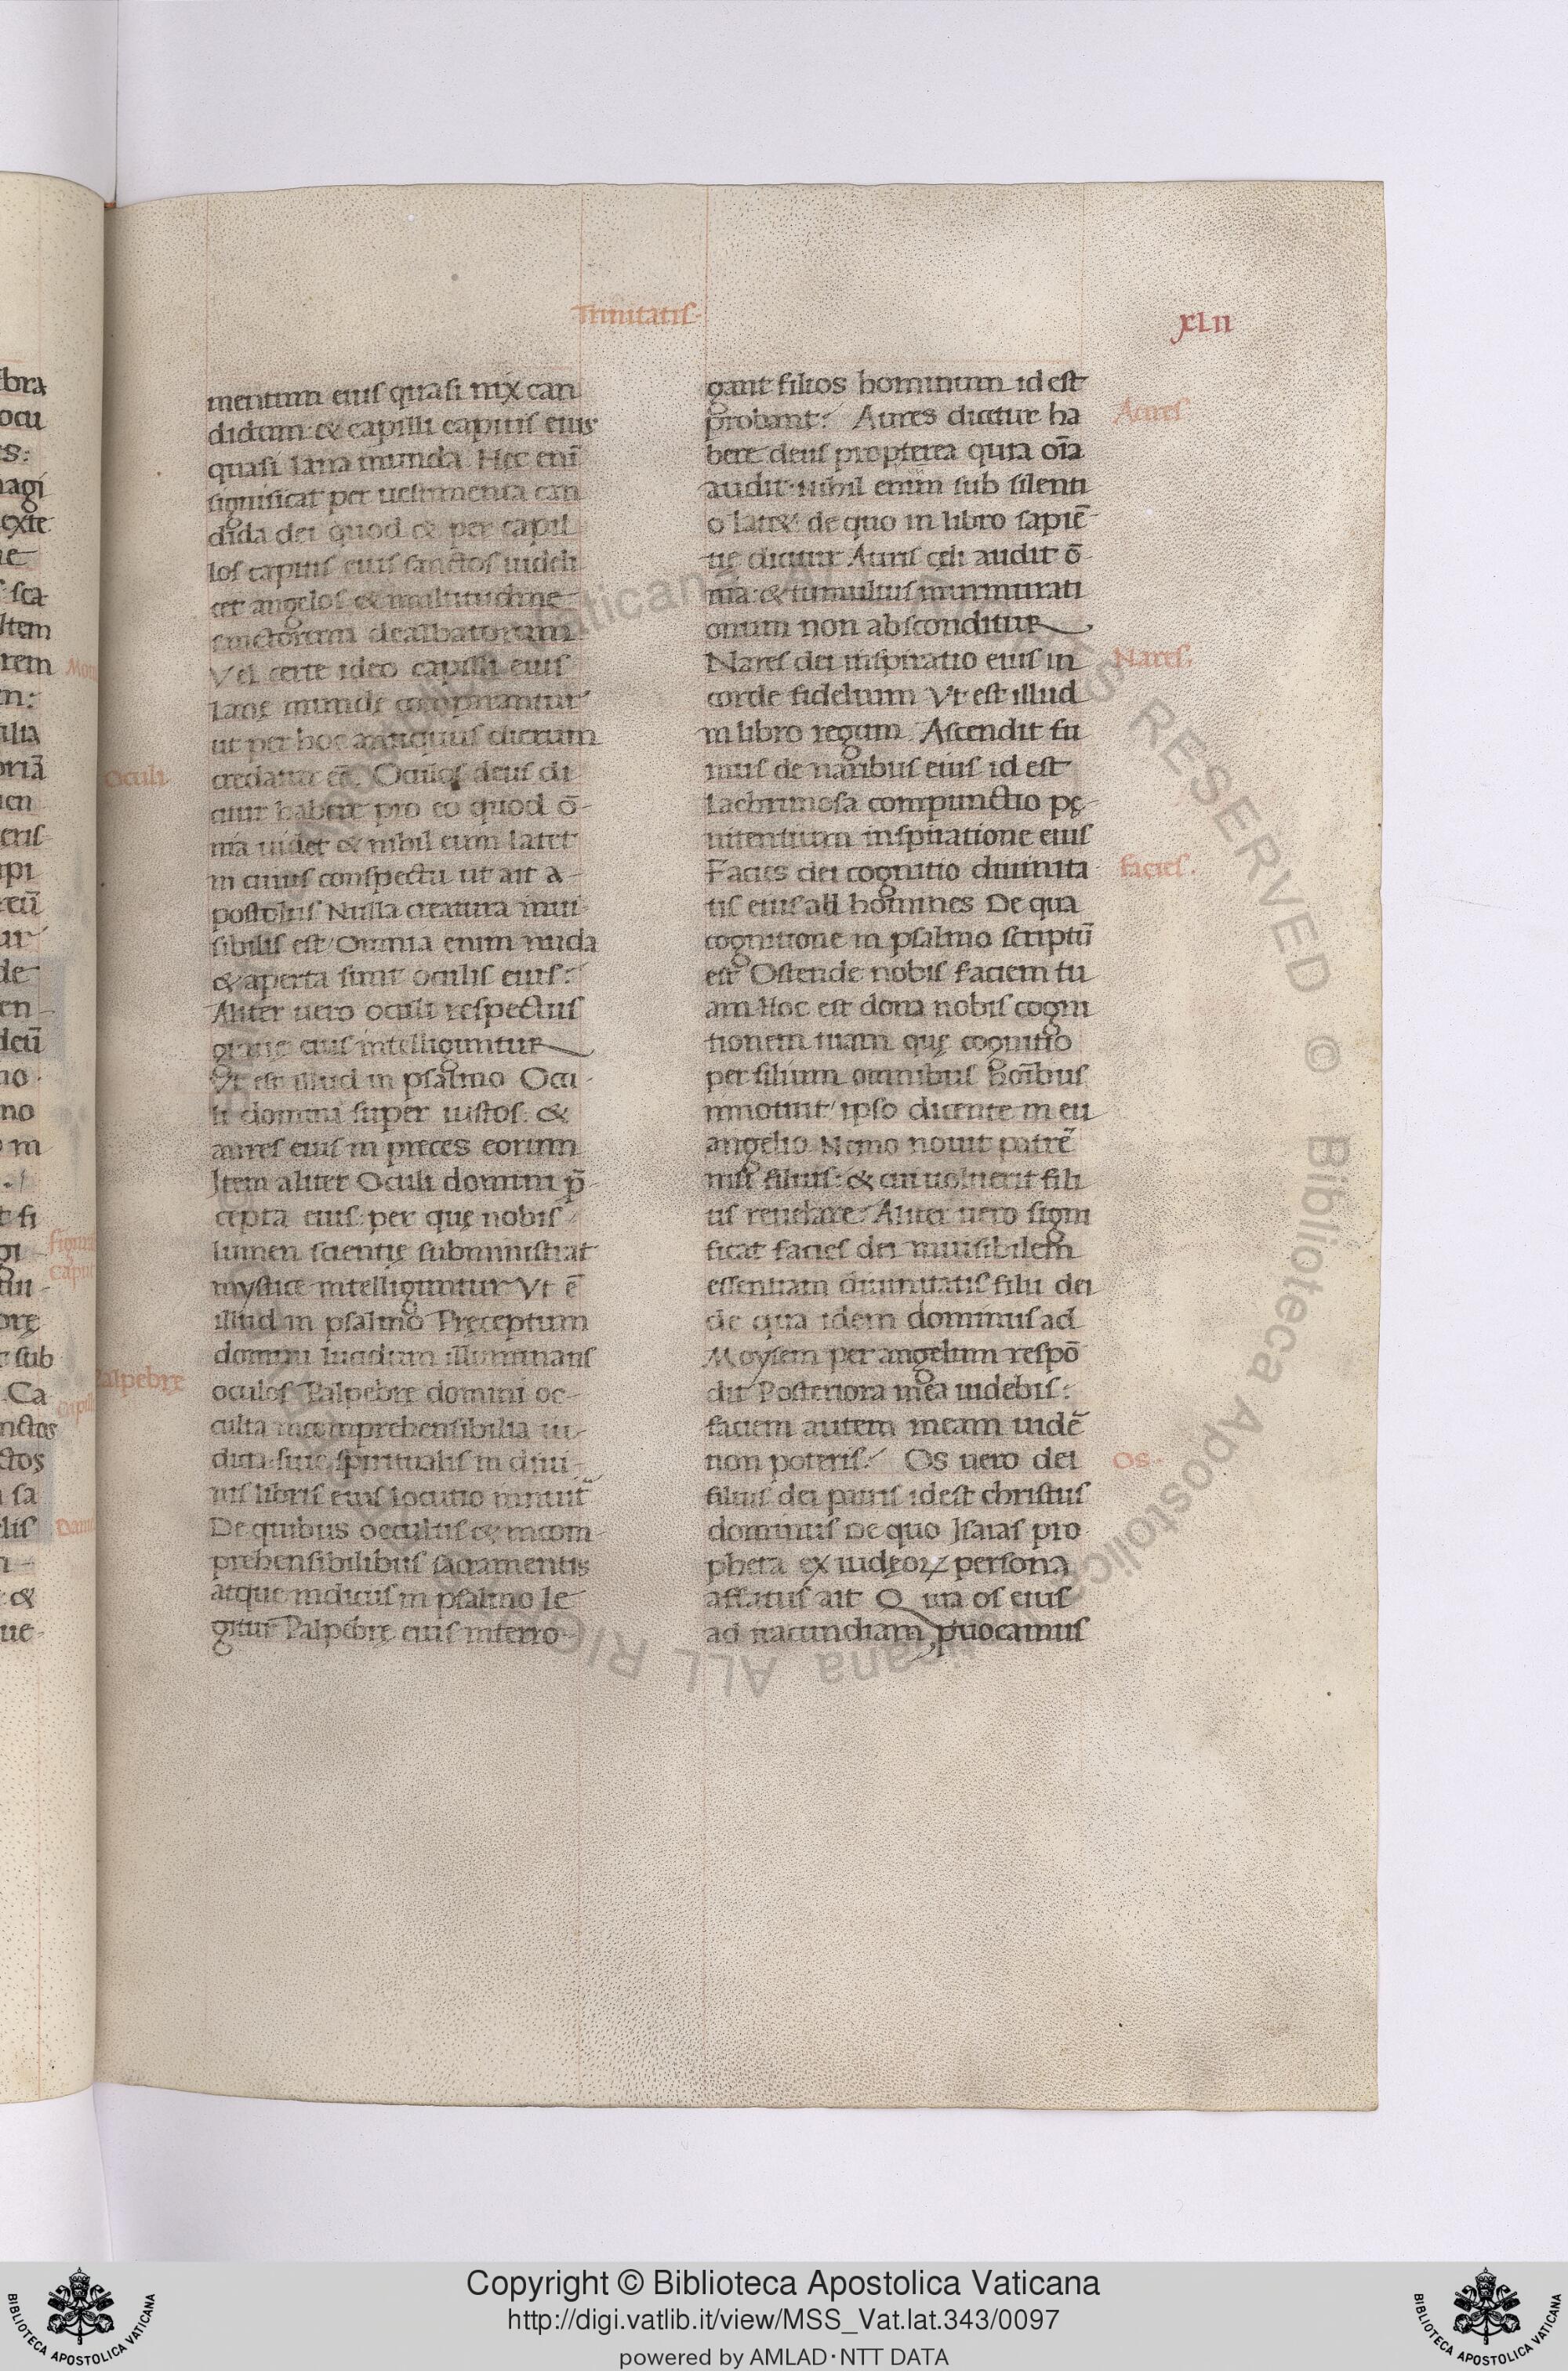 Trinitatis·
XLII
mentum eius quasi nix can
didum: & capilli capitis eius
quasi lana munda. Hęc eni̅
significat per uestimenta can
dida dei quod & per capil
los capitis eius sanctos uideli
cet angelos & multitudine
sanctorum dealbatorum
Vel certe ideo capilli eius
lanę mundę comparantur
ut per hoc antiquus dierum
credatur ee̅. Oculos deus di
Oculi
citur habere pro eo quod o̅-
nia uidet & nihil eum latet
in cuius conspectu ut ait A-
postolus Nulla creatura inui-
sibilis est/ Omnia enim nuda
& aperta sunt oculis eius:
Aliter uero oculi respectus
gratię eius intelliguntur
Vt est illud in psalmo Ocu-
li domini super iustos: &
aures eius in preces eorum
Item aliter Oculi domini p̅-
cepta eius: per quę nobis
lumen scientię subministrat
mystice intelliguntur Vt e̅
illud in psalmo Pręceptum
domini lucidum illuminans
oculos Palpebrę domini oc-
Palpebrę
culta incomprehensibilia iu-
dicia siue spiritualis in diui-
nis libris eius locutio innuit̅
De quibus occultis & incom-
prehensibilibus sacramentis
atque indiciis in psalmo le
gitur Palpebrę eius interro-
gant filios hominum id est
probant: Aures dicitur ha
Aures
bere deus propterea quia oi̅a
audit· nihil enim sub silenti
o lat&: de quo in libro sapie̅-
tię dicitur Auris cęli audit o̅-
nia: & tumultus murmurati
onum non absconditur
Nares dei inspiratio eius in
Nares:
corde fidelium Vt est illud
in libro regum Ascendit fu
mus de naribus eius id est
lachrimosa compunctio pę-
nitentium inspiratione eius
Facies dei cognitio diuinita
facies.
tis eius ad homines De qua
cognitione in psalmo scriptu̅
est Ostende nobis faciem tu
am Hoc est dona nobis cogni
tionem tuam quę cognitio
per filium omnibus hoi̅bus
innotuit/ ipso dicente in eu
angelio Nemo nouit patre̅
nisi filius: & cui uoluerit fili
us reuelare: Aliter uero signi
ficat facies dei inuisibilem
essentiam diuinitatis filii dei
de qua idem dominus ad
Moysem per angelum respo̅
dit Posteriora mea uidebis:
faciem autem meam uide̅
non poteris: Os uero dei
Os·
filius dei patris idest christus
dominus De quo Isaias pro
pheta ex iudęoꝝ persona
affatus ait Quia os eius
ad iracundiam ꝓuocamus
Copyright © Biblioteca Apostolica Vaticana
http://digi.vatlib.it/view/MSS_Vat.lat.343/0097
powered by AMLAD·NTT DATA